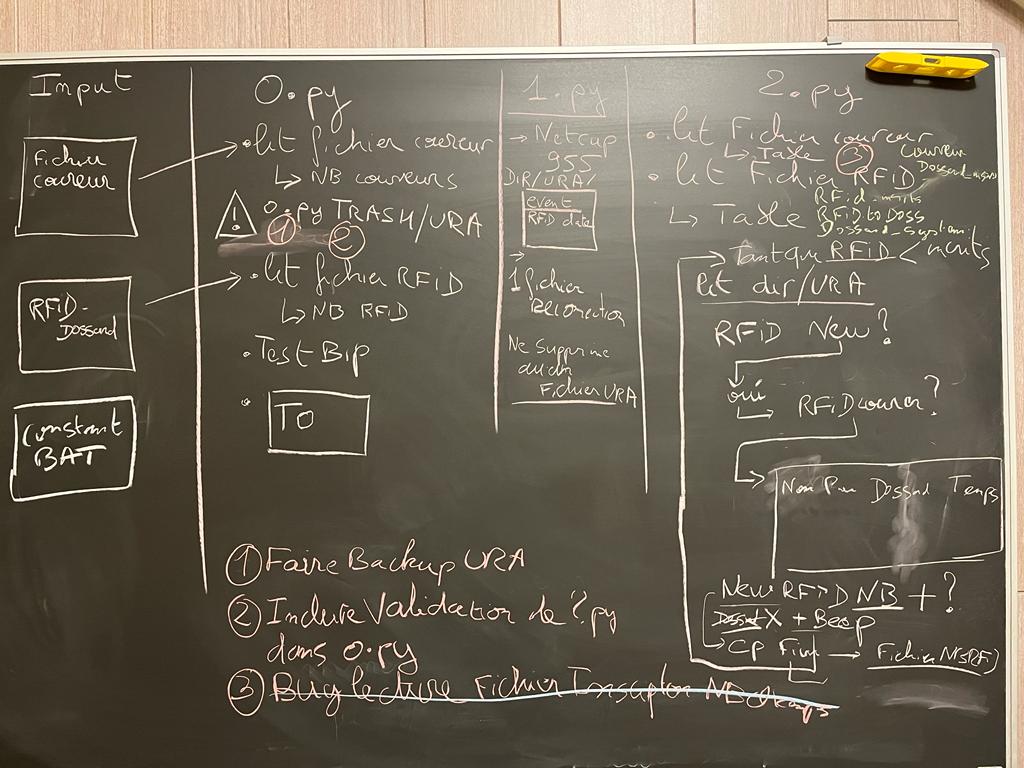 Input
Fichier
coureur
RFiD-
Dossard
Constant
BAT
0.py
• lit fichier coureur
↳ NB coureurs
! 0.py TRASH/URA
① ②
• lit fichier RFiD
↳ NB RFiD
• Test Bip
• TO
1.py
→ Netcup
955
DIR/URA/
event
RFiD date
→
1 fichier
Ne supprime
Fichier URA
2.py
• lit Fichier coureur
↳ Table ③
Coureur
• lit Fichier RFiD
↳ Table
RFiD to Doss
Tant que RFiD <
lit dir/URA
RFiD New?
oui
RFiD coureur?
Nom Dossard Temps
New RFiD NB + ?
+ Beep
→ CP → Fichier
① Faire Backup URA
② Inclure Validation de ?.py
dans 0.py
③ Bug lecture Fichier